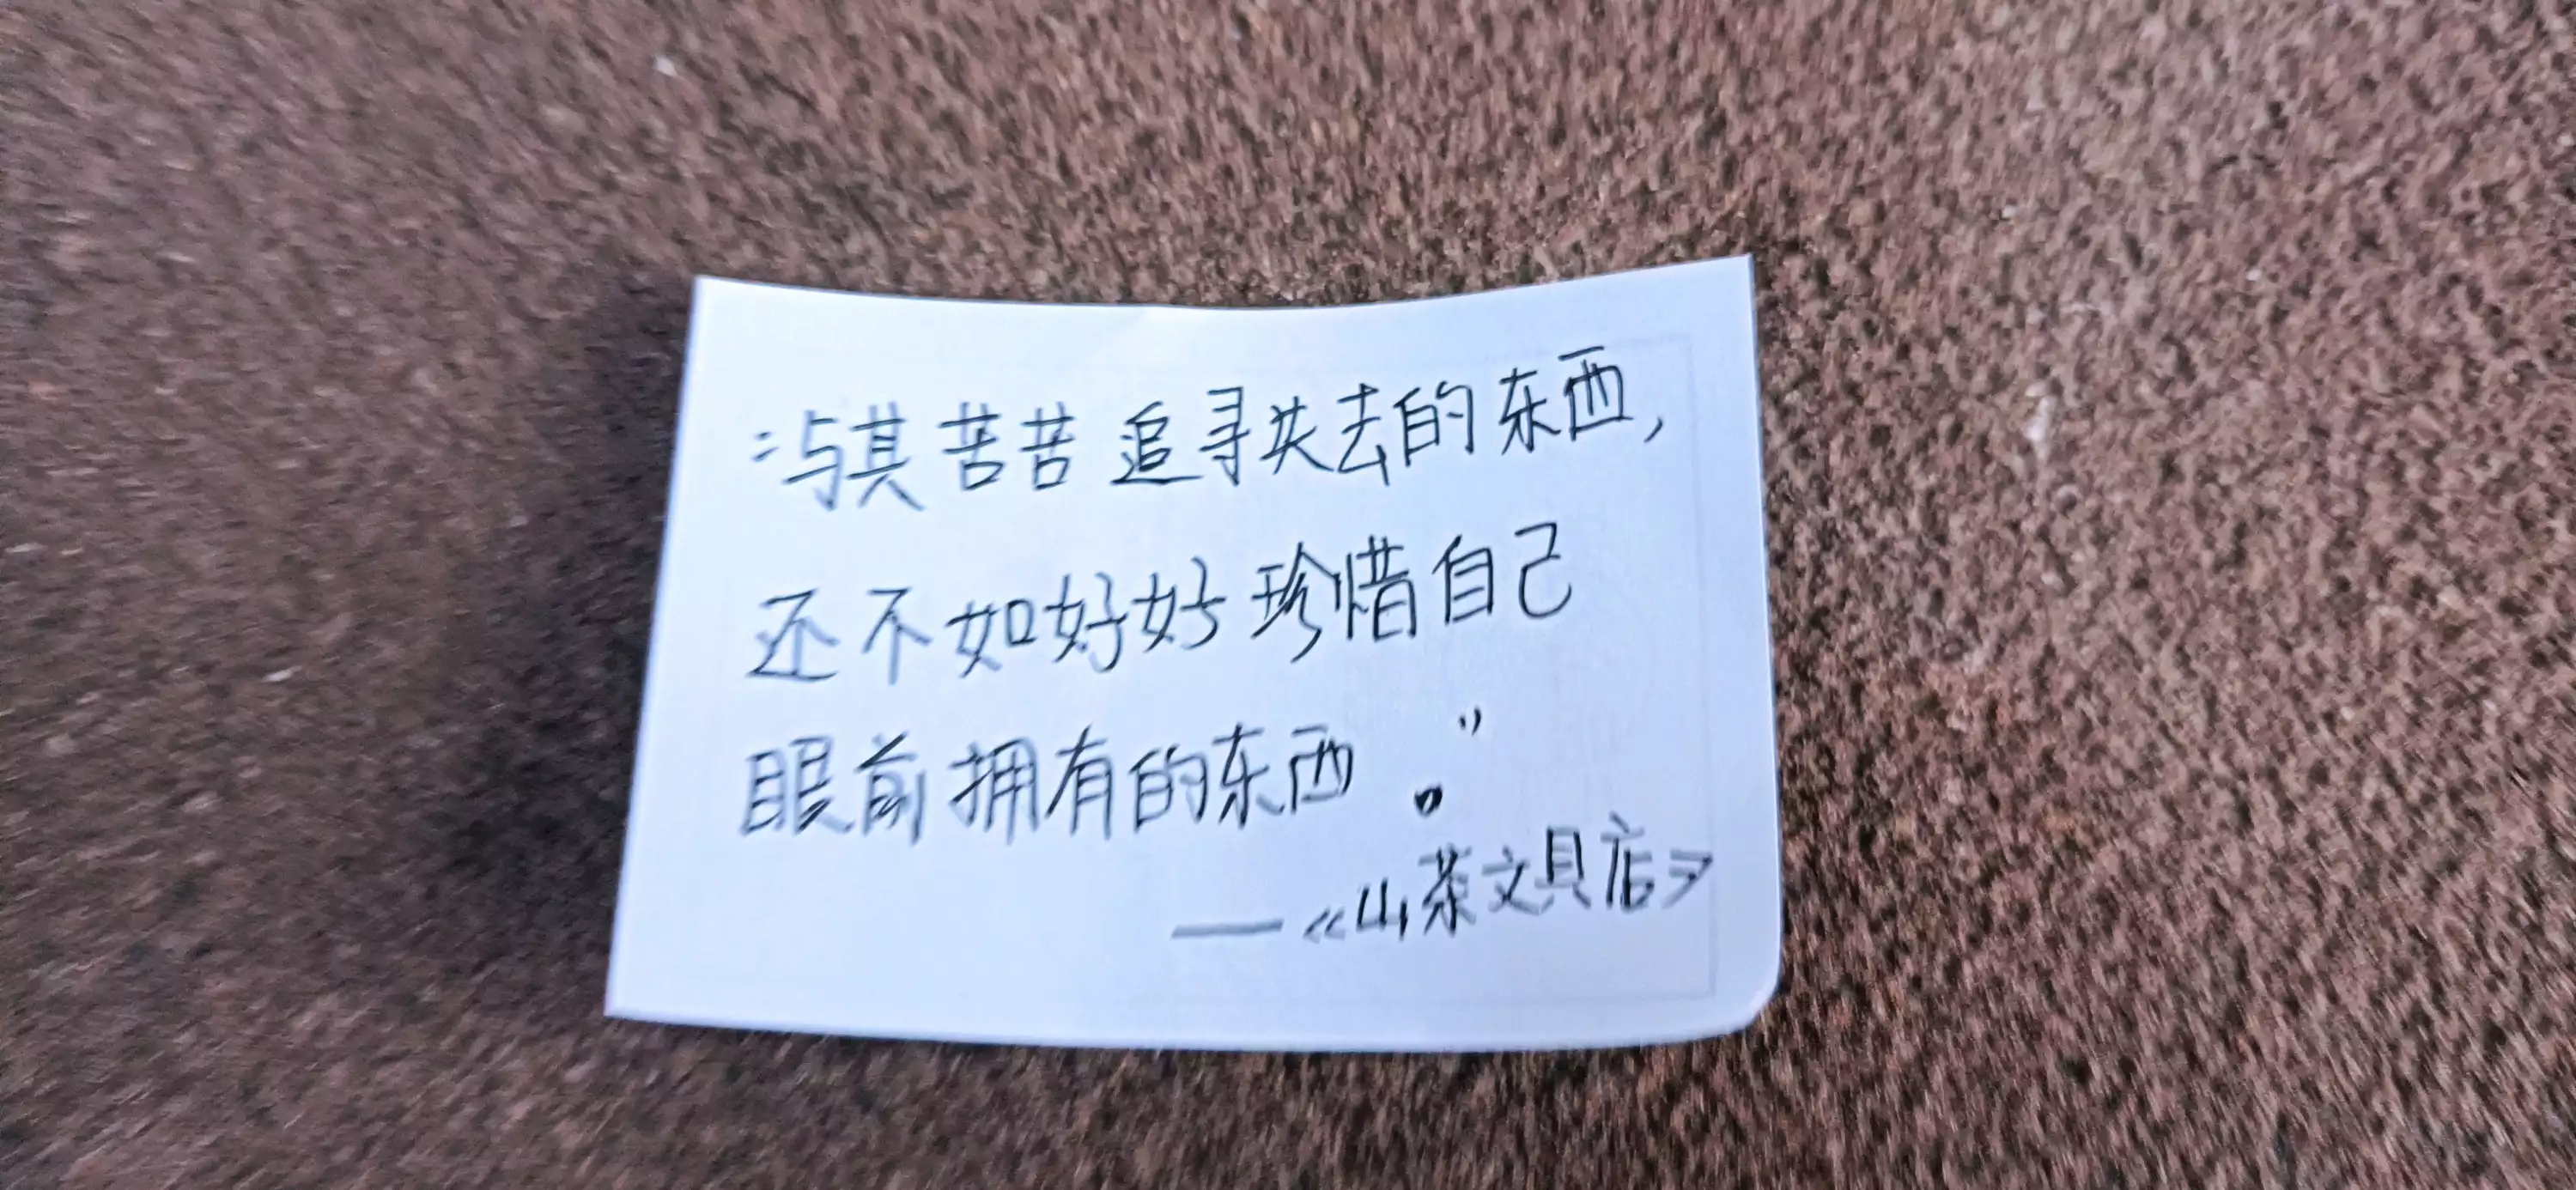 “与其苦苦追寻失去的东西，
还不如好好珍惜自己
眼前拥有的东西。”
——《山茶文具店》